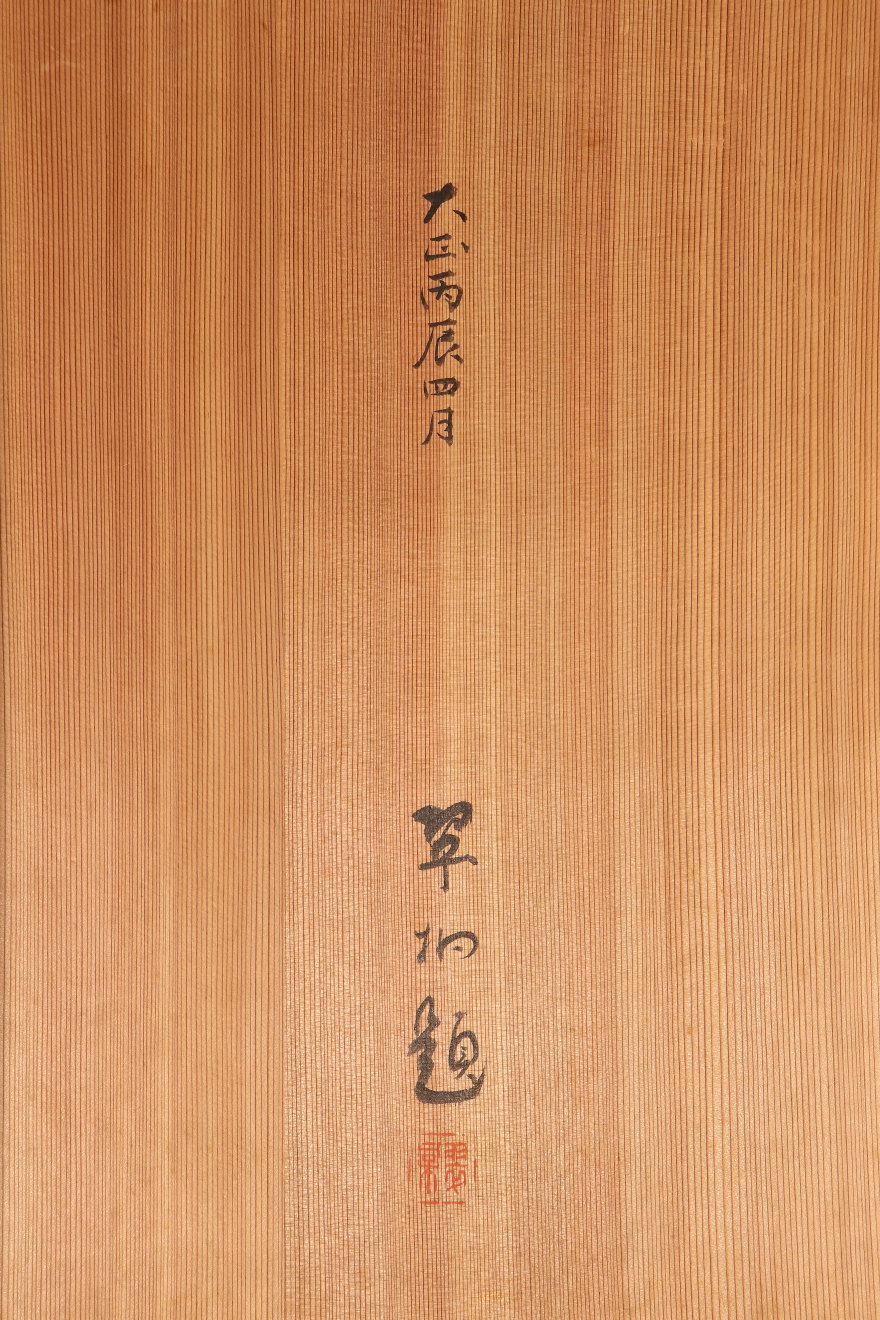 大正丙辰四月
翠桐題